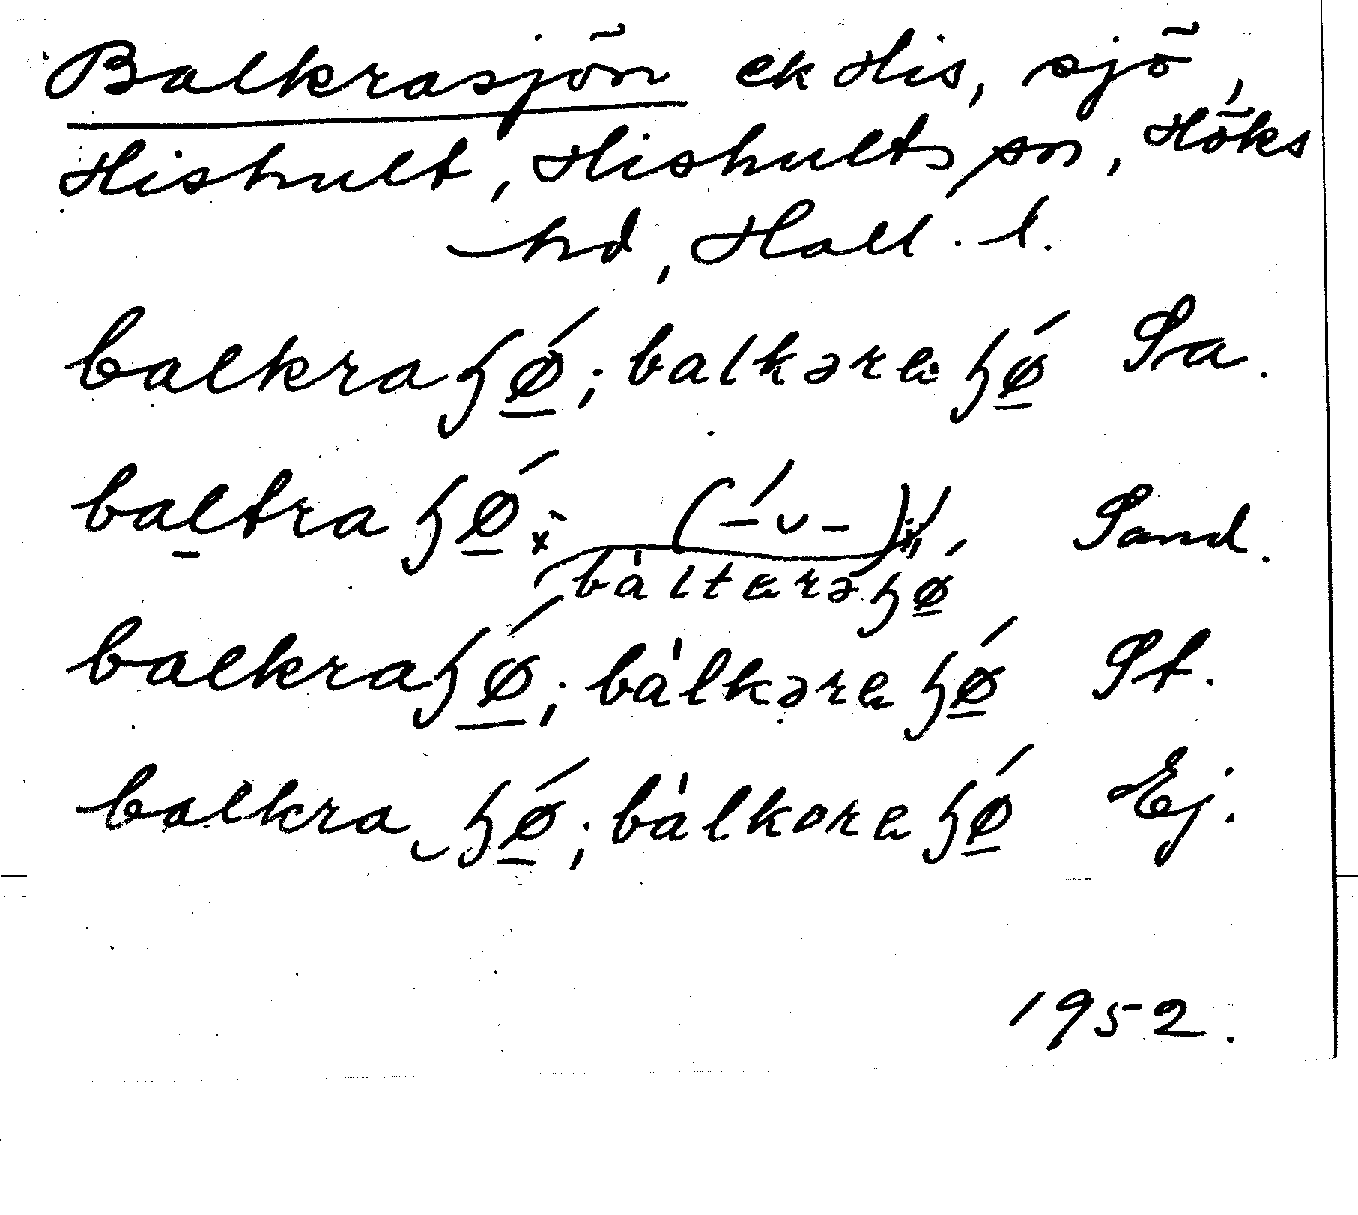 Balkrasjön ek His, sjö,
Hishult, Hishults sn, Höks
hd, Hall. l.
balkraɧǿ̲; balkəraɧǿ̲ Sa.
baltraɧǿ̲; (–́ ᴗ –) Sand.
bàltɐrəɧǿ̲
balkraɧǿ̲; bàlkərɐɧǿ̲ St.
balkra‿ɧǿ̲; bàlkorɐɧǿ̲ Ej.
1952.